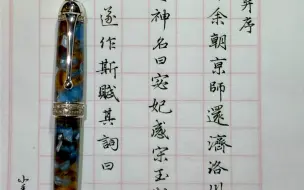 并序
余朝京師還濟洛川
神名曰宓妃感宋玉
遂作斯賦其詞曰
小